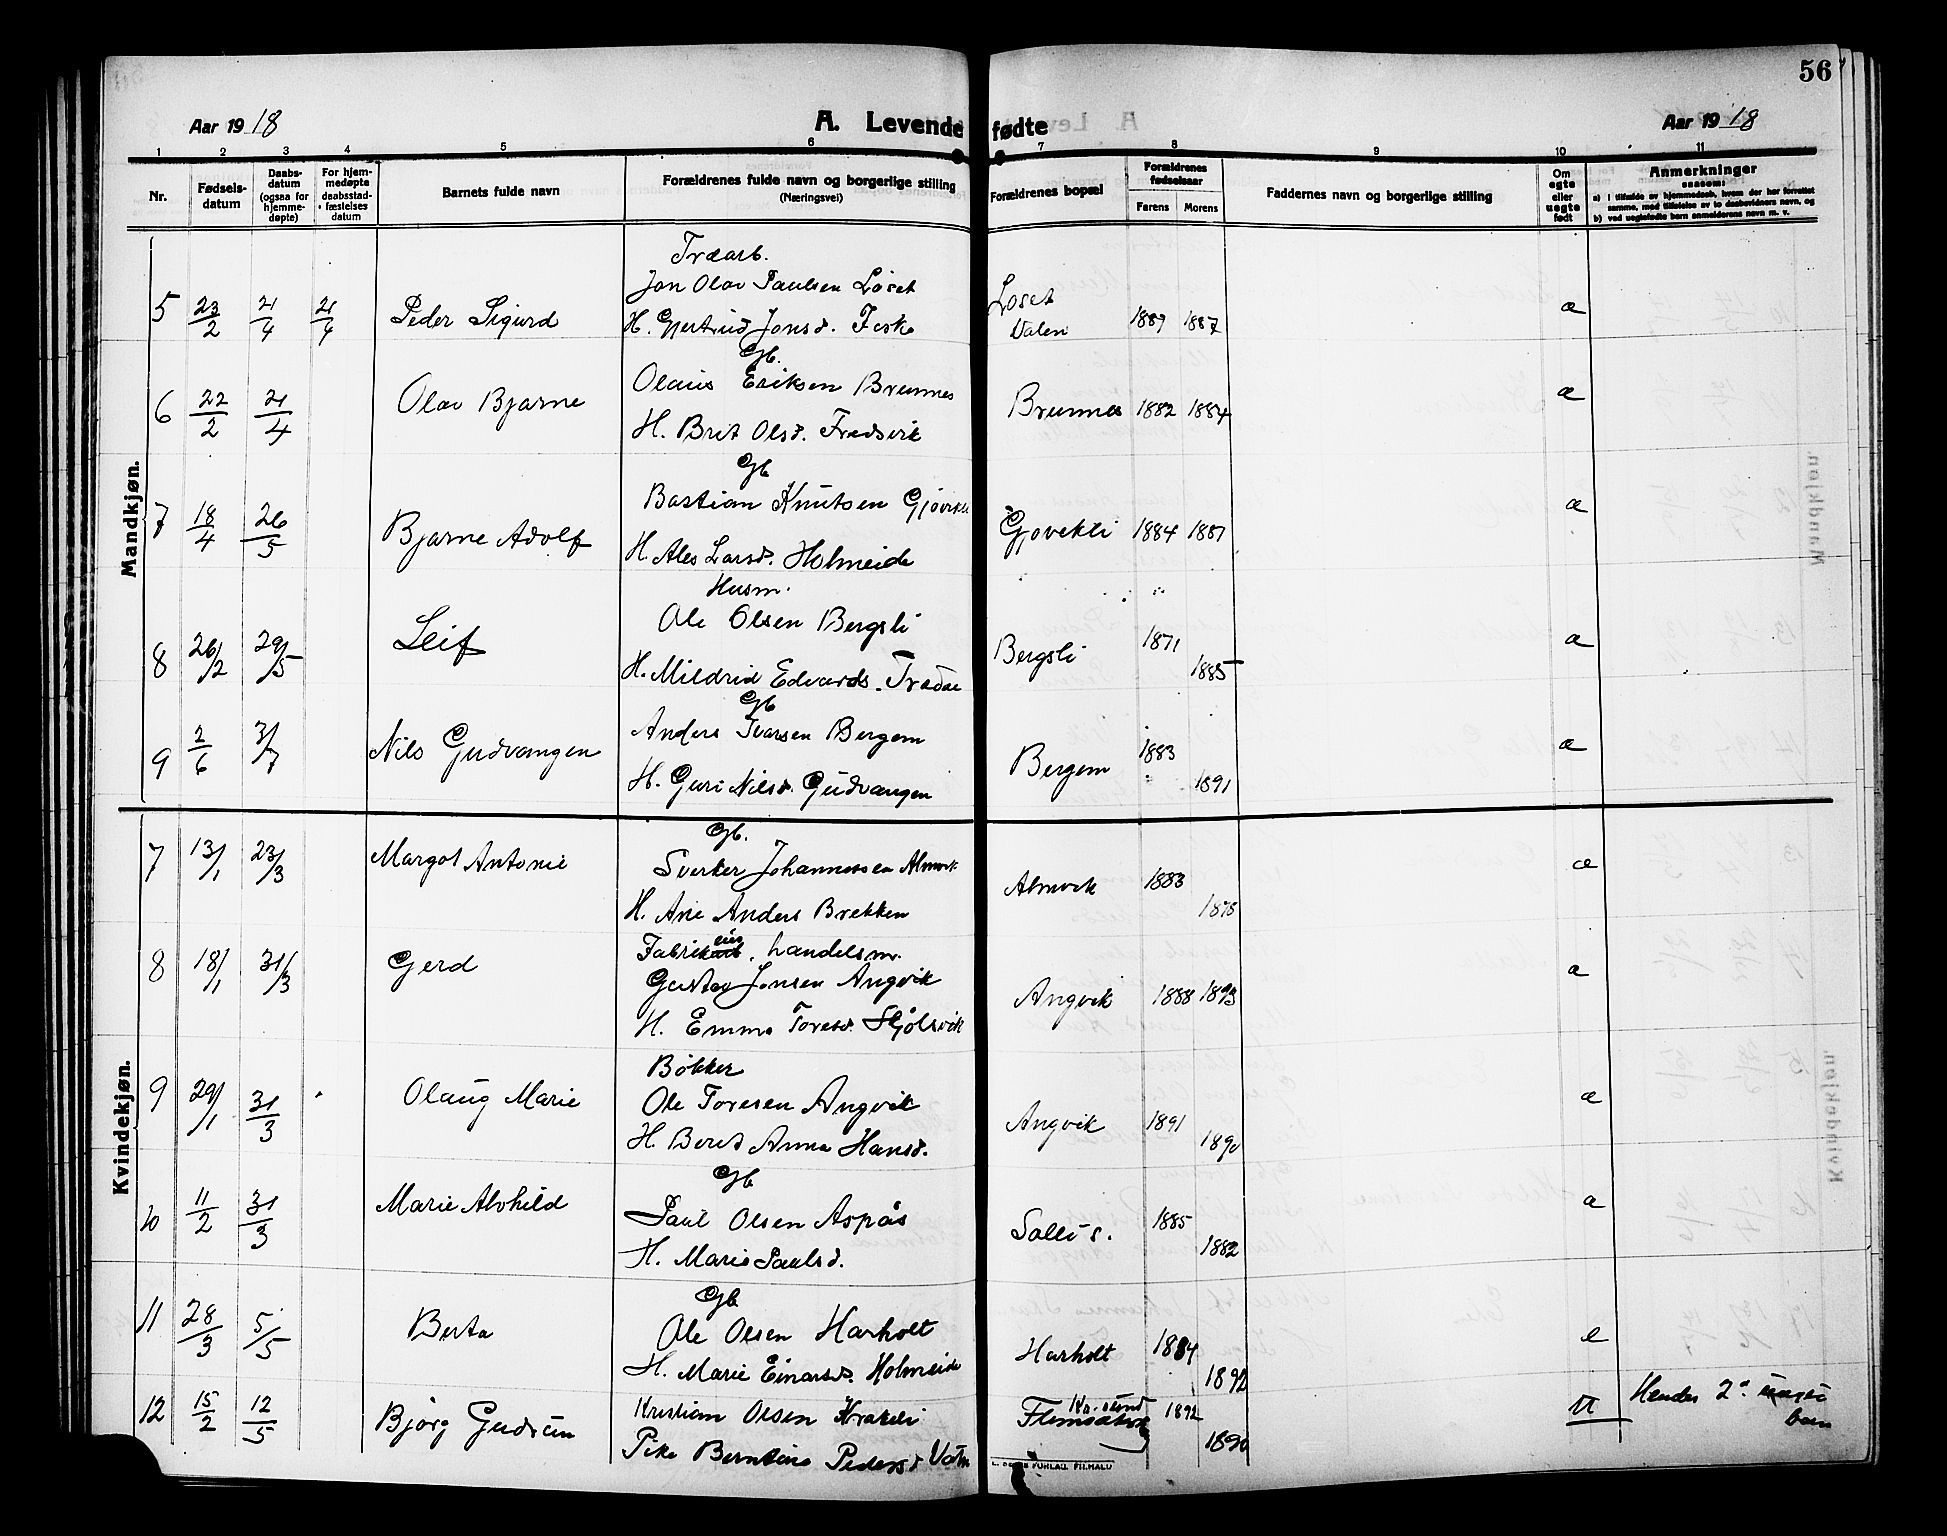 56
Aar 1918
A. Levende fødte
Aar 1918
1 2 3 4 5 6 7 8 9 10 11
Nr.
Fødsels-
datum
Daabs-
datum
(ogsaa for
hjemme-
døpte)
For hjem-
medøpte
daabsstad-
fæstelses
datum
Barnets fulde navn
Forældrenes fulde navn og borgerlige stilling
(Næringsvei)
Forældrenes bopæl
Forældrenes
fødselsaar
Farens Morens
Faddernes navn og borgerlige stilling
Om
egte
eller
uegte
født
Anmerkninger
saasom:
a) i tilfælde av hjemmedaab, hvem der har forrettet
samme, med tilføielse av to daabsvidners navn, og
b) ved uegtefødte barn anmelderens navn m. v.
Mandkjøn.
Træarb.
5 23/2 21/4 21/4 Peder Sigurd Jon Olav Paulsen Løset
H. Gjertrud Jonsd. Feske
Løset
Dalen
1889 1887 æ
Gb.
6 22/2 21/4 Olav Bjarne Olaus Eriksen Brunnes
H. Brit Olsd. Fredsvik
Brunnes 1882 1884 æ
Gb
7 18/4 26/5 Bjarne Adolf Bastian Knutsen
H. Ales Larsd. Holmeide
Gjøvikli 1884 1887 æ
Husm.
8 26/2 29/5 Leif Ole Olsen Bergsli
H. Mildrid Edvards.
Bergsli 1871 1885 æ
Gb
9 2/6 3/7 Nils Gudvangen Anders Ivarsen Bergem
H. Guri Nilsd. Gudvangen
Bergem 1883 1891 æ
Kvindekjøn.
Gb.
7 13/1 23/3 Margot Antonie Sverker Johannessen Almvik
H. Ane Anders Brekken
Almvik 1883 1878 æ
Fabrikeier, handelsm.
8 18/1 31/3 Gerd Gustav Jonsen Angvik
H. Emma Toresd.
Angvik 1888 1893 æ
Bøkker
9 29/1 31/3 Olaug Marie Ole Toresen Angvik
H. Beret Anna Hansd.
Angvik 1891 1890 æ
Gb
10 11/2 31/3 Marie Alvhild Paul Olsen Aspås
H. Marie Paulsd.
1885 1882 æ
Gb
11 28/3 5/5 Berta Ole Olsen Harholt
H. Marie Einarsd. Holmeide
Harholt 1884 1892 e
12 15/2 12/5 Bjørg Gudrun Kristian Olsen
Pike Berntine Pedersd
Kr.sund
1892 1890 u
Hendes 2det uegte
barn